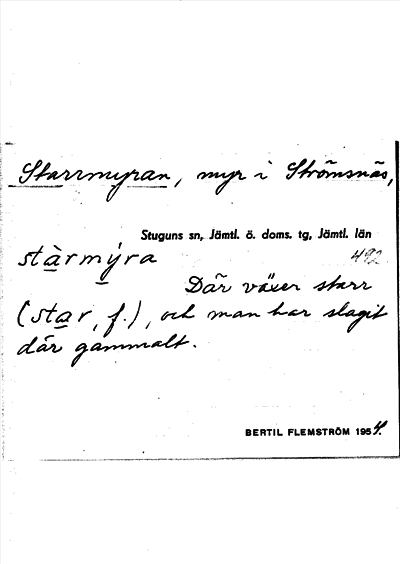 Starrmyran, myr i Strömsnäs,
Stuguns sn, Jämtl. ö. doms. tg, Jämtl. län
stàrmýra 492
Där växer starr
(star, f.), och man har slagit
där gammalt.
BERTIL FLEMSTRÖM 1954.